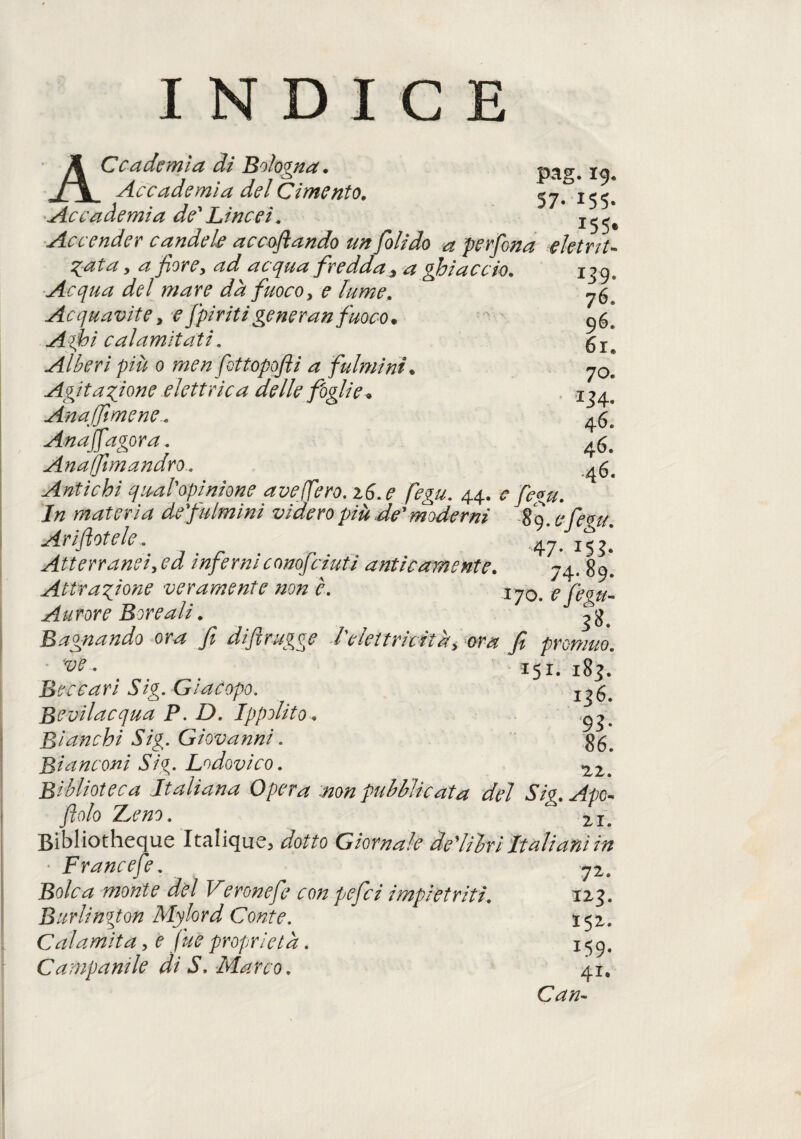 INDICE
ACcademia di Bologna. pag. 19.
Accademia del Cimento. 57. 155.
Accademia de' Lincei. 155.
Accender candele accoſtando un ſolido a perſona eletrit-
zata, a fiore, ad acqua fredda, a ghiaccio. 139.
Acqua del mare dà fuoco, e lume. 76.
Acquavite, e ſpiriti generan fuoco. 96.
Aghi calamitati. 61.
Alberi più o men ſottopoſti a fulmini. 70.
Agitazione elettrica delle foglie. 134.
Anaſſimene. 46.
Anaſſagora. 46.
Anaſſimandro. 46.
Antichi qual'opinione aveſſero. 26. e ſegu. 44. e ſegu.
In materia de' fulmini videro più de' moderni 89. e ſegu.
Ariſtotele. 47. 153.
Atterranei, ed inferni conoſciuti anticamente. 74. 89.
Attrazione veramente non è. 170. e ſegu-
Aurore Boreali. 38.
Bagnando ora ſi diſtrugge l'elettricità, ora ſi promuo.
ve. 151. 183.
Beccari Sig. Giacopo. 136.
Bevilacqua P. D. Ippolito. 93.
Bianchi Sig. Giovanni. 86.
Bianconi Sig. Lodovico. 22.
Biblioteca Italiana Opera non pubblicata del Sig. Apo-
ſtolo Zeno. 21.
Bibliotheque Italique, dotto Giornale de' libri Italiani in
Franceſe. 72.
Bolca monte del Veroneſe con peſci impietriti. 123.
Burlington Mylord Conte. 152.
Calamita, e ſue proprietà. 159.
Campanile di S. Marco. 41.
Can-